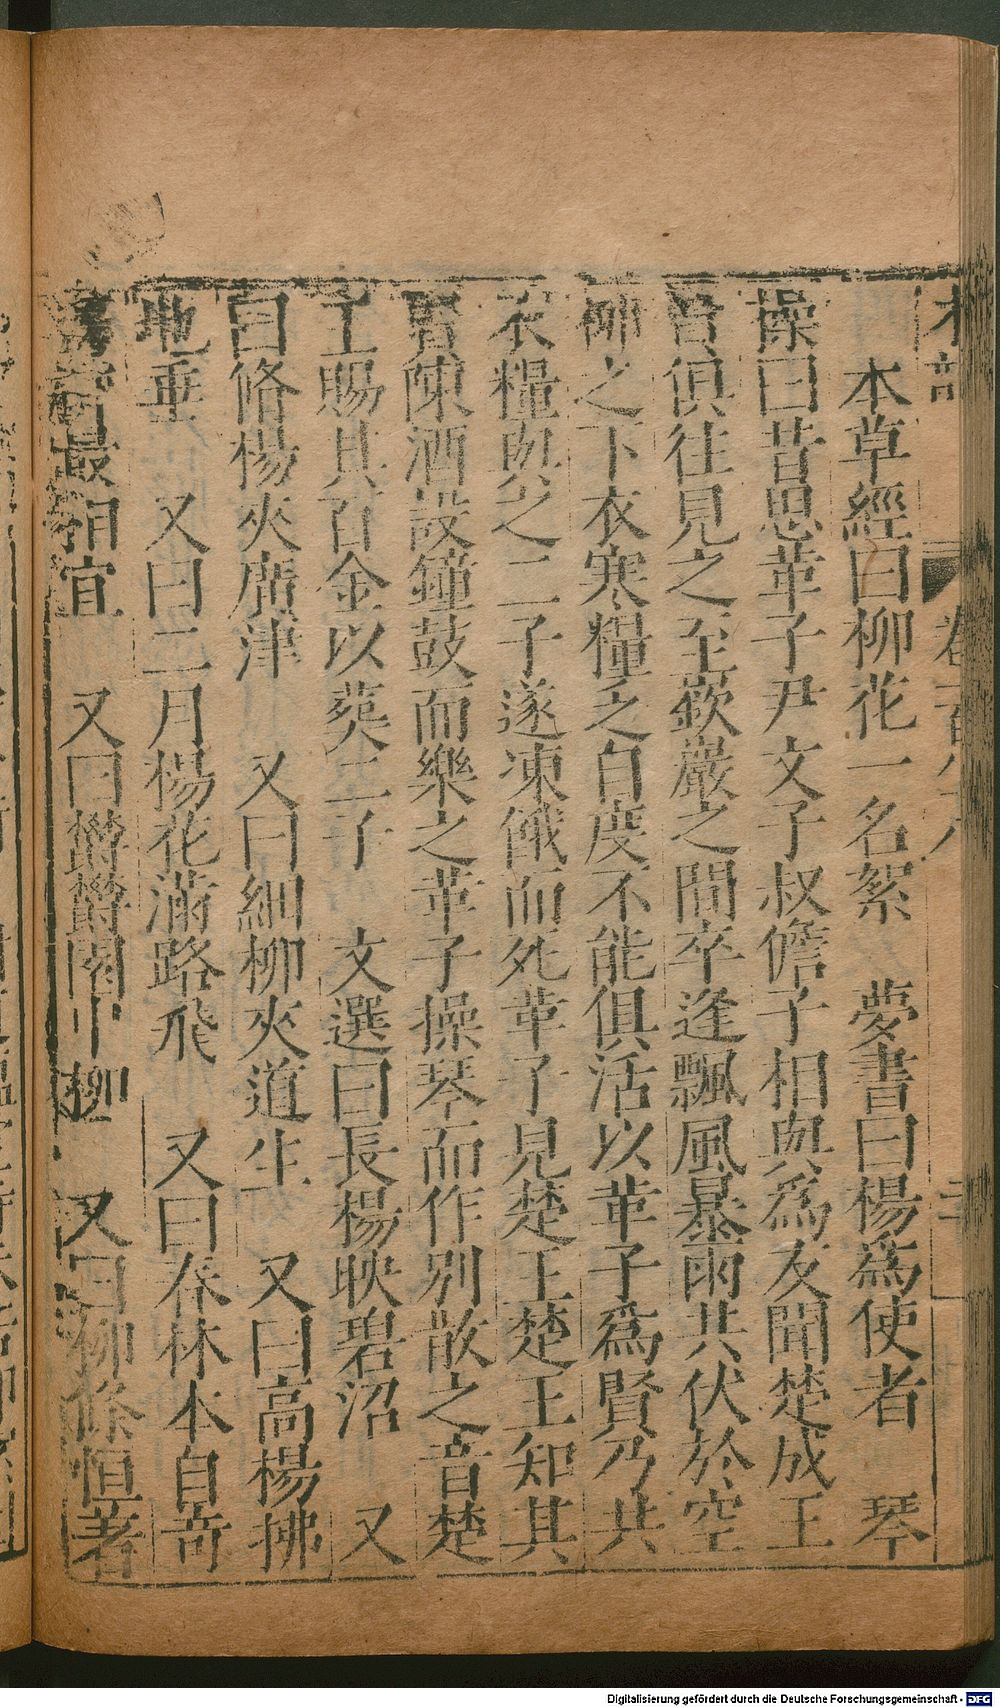 木部
卷一百八八
三
本草經曰柳花一名絮　夢書曰楊爲使者　琴
操曰昔思革子尹文子叔儋子相與爲友聞楚成王
俱往見之至嶔巖之間卒逢飄風暴雨共伏於空
柳之下衣寒糧乏自度不能俱活以革子爲賢乃共
衣糧與之二子遂凍餓而死革子見楚王楚王知其
賢陳酒設鐘鼓而樂之革子操琴而作別散之音楚
王賜其百金以葬二子　文選曰長楊映碧沼　又
曰脩楊夾廣津　又曰細柳夾道生　又曰高楊拂
地垂　又曰二月楊花滿路飛　又曰春林本自奇
最相宜　又曰欝欝園中柳　又曰柳條恒著
Digitalisierung gefördert durch die Deutsche Forschungsgemeinschaft - DFG